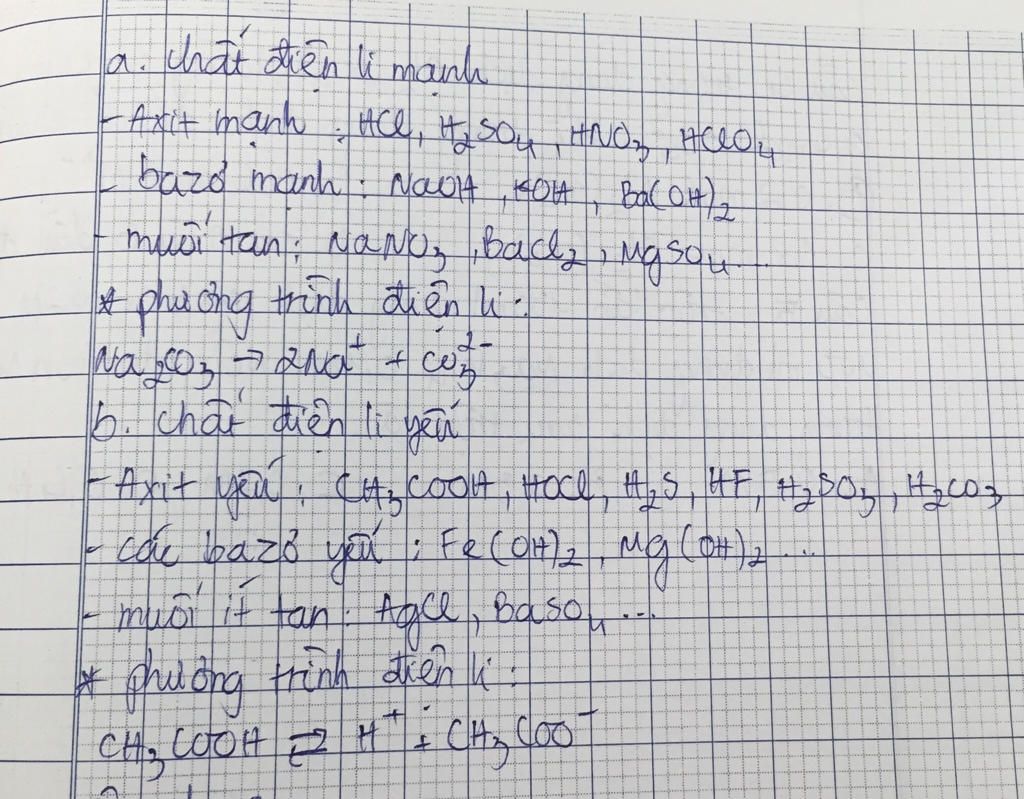 a. chất điện li mạnh
- Axit mạnh : HCl, H₂SO₄, HNO₃, HClO₄
- bazơ mạnh : NaOH, KOH, Ba(OH)₂
- muối tan : NaNO₃, BaCl₂, MgSO₄...
* phương trình điện li :
Na₂CO₃ → 2Na⁺ + CO₃²⁻
b. chất điện li yếu
- Axit yếu : CH₃COOH, HOCl, H₂S, HF, H₂SO₃, H₂CO₃
- các bazơ yếu : Fe(OH)₂, Mg(OH)₂ ...
- muối ít tan : AgCl, BaSO₄ ...
* phương trình điện li :
CH₃COOH ⇄ H⁺ + CH₃COO⁻